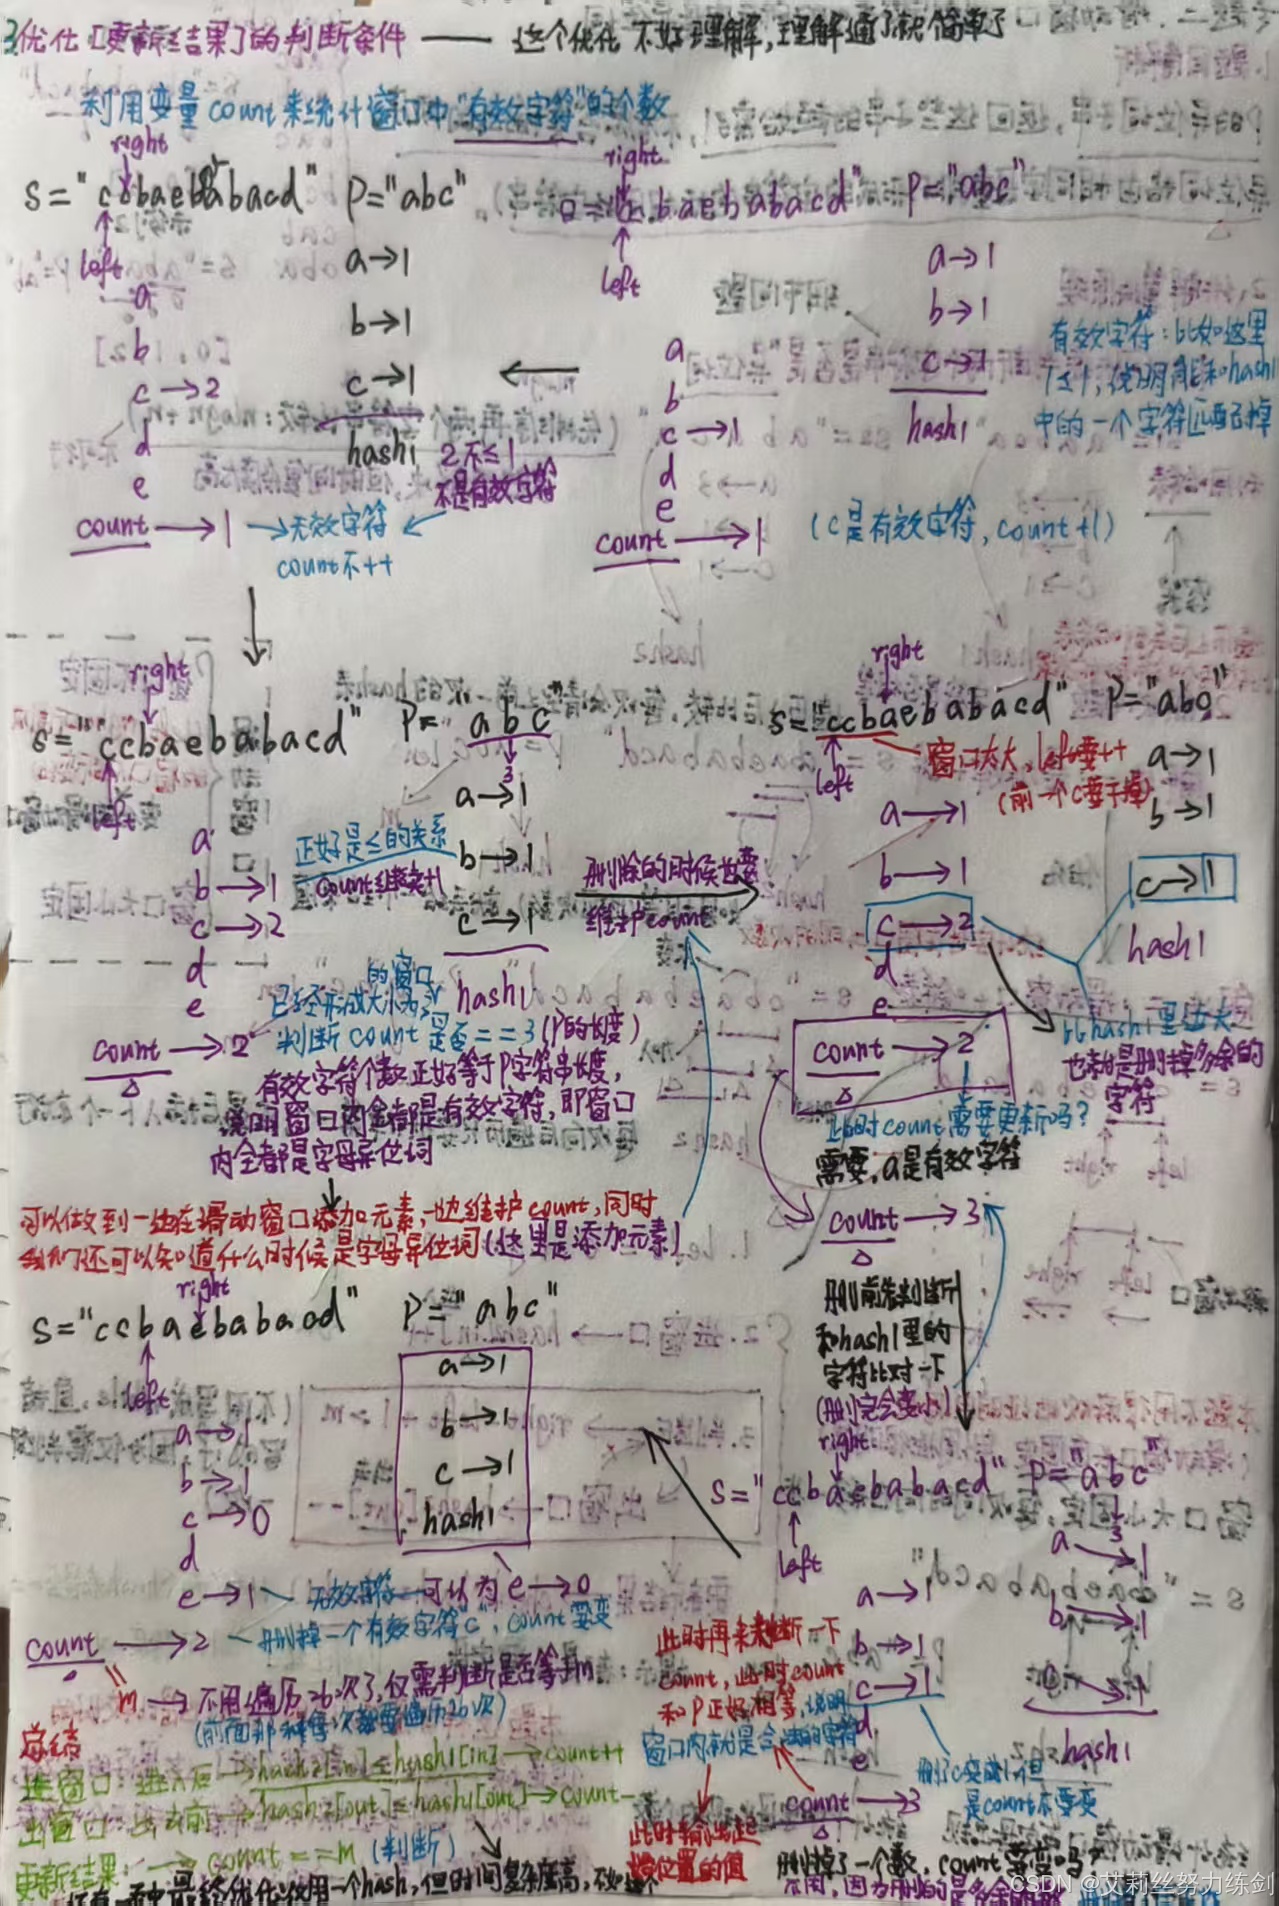 3.优化[更新结果]的判断条件 —— 这个优化不好理解,理解通了就简单了
利用变量count来统计窗口中"有效字符"的个数
right
s="ccbaebabacd" P="abc"
left
a
b
c→2
d
e
count→1
a→1
b→1
c→1
hash1
2不≤1
不是有效字符
→无效字符
count不++
right
baebabacd" P="abc"
left
a
b
c→1
d
e
count→1
a→1
b→1
c→1
hash1
有效字符:比如这里
1≤1,说明能和hash1
中的一个字符匹配掉
(c是有效字符,count+1)
right
s="ccbaebabacd" P="abc"
left
3
a
b→1
c→2
d
e
count→2
a→1
b→1
c→1
hash1
正好是≤的关系
count继续+1
已经形成大小为3的窗口
判断count是否==3(P的长度)
有效字符个数正好等于P字符串长度,
说明窗口内全都是有效字符,即窗口
内全都是字母异位词
删除的时候也要
维护count
right
s="ccbaebabacd" P="abc"
left
窗口太大,left要++
(前一个c要干掉)
a→1
b→1
c→2
d
e
count→2
a→1
b→1
c→1
hash1
比hash1里边大
也就是删掉多余的
字符
此时count需要更新吗?
需要,a是有效字符
count→3
可以做到一边在滑动窗口添加元素,一边维护count,同时
我们还可以知道什么时候是字母异位词(这里是添加元素)
删前先判断
和hash1里的
字符比对一下
(删完会变小)
right
s="ccbaebabacd" P="abc"
left
a→1
b→1
c→0
d
e→1
count→2
a→1
b→1
c→1
hash1
无效字符 可认为e→0
删掉一个有效字符"c",count要变
m→不用遍历26次了,仅需判断是否等于m
(前面那种每次都要遍历26次)
right
s="ccbaebabacd" P="abc"
left
3
a→1
b→1
c→1
d
e
count→3
a→1
b→1
hash1
此时再来判断一下
count,此时count
和P正好相等,说明
窗口内就是合法的字符
此时输出起
始位置的值
删了c变成1,但
是count不要变
删掉了一个数,count要变吗?
不用,因为删的是多余的
总结
进窗口:进入后→hash2[in]≤hash1[in]→count++
出窗口:出去前→hash2[out]≤hash1[out]→count--
更新结果:→count==m(判断)
还有一种 用一个hash,但时间复杂度高,不如
CSDN @艾莉丝努力练剑